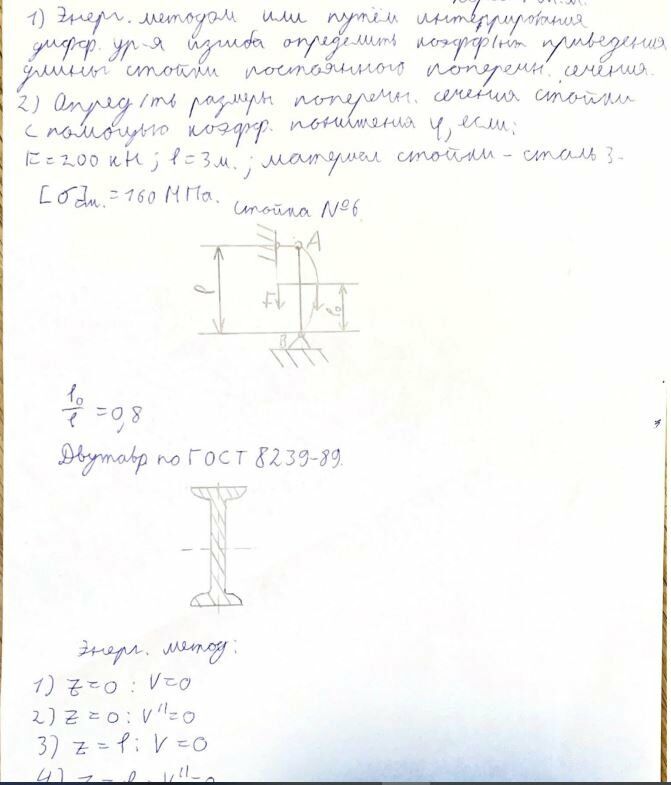 1) Энерг. методом или путём интегрирования
дифф. ур-я изгиба определить коэфф/нт приведения
длины стойки постоянного поперечн. сечения.
2) Опред/ть размеры поперечн. сечения стойки
с помощью коэфф. понижения φ, если:
F=200 кН; l=3м.; материал стойки - сталь 3-
[σ]сж.=160 МПа.
стойка №6
A
l
F
l₀
B
l₀/l = 0,8
Двутавр по ГОСТ 8239-89.
Энерг. метод:
1) z=0 : V=0
2) z=0 : V''=0
3) z=l : V=0
4) z=l : V''=0